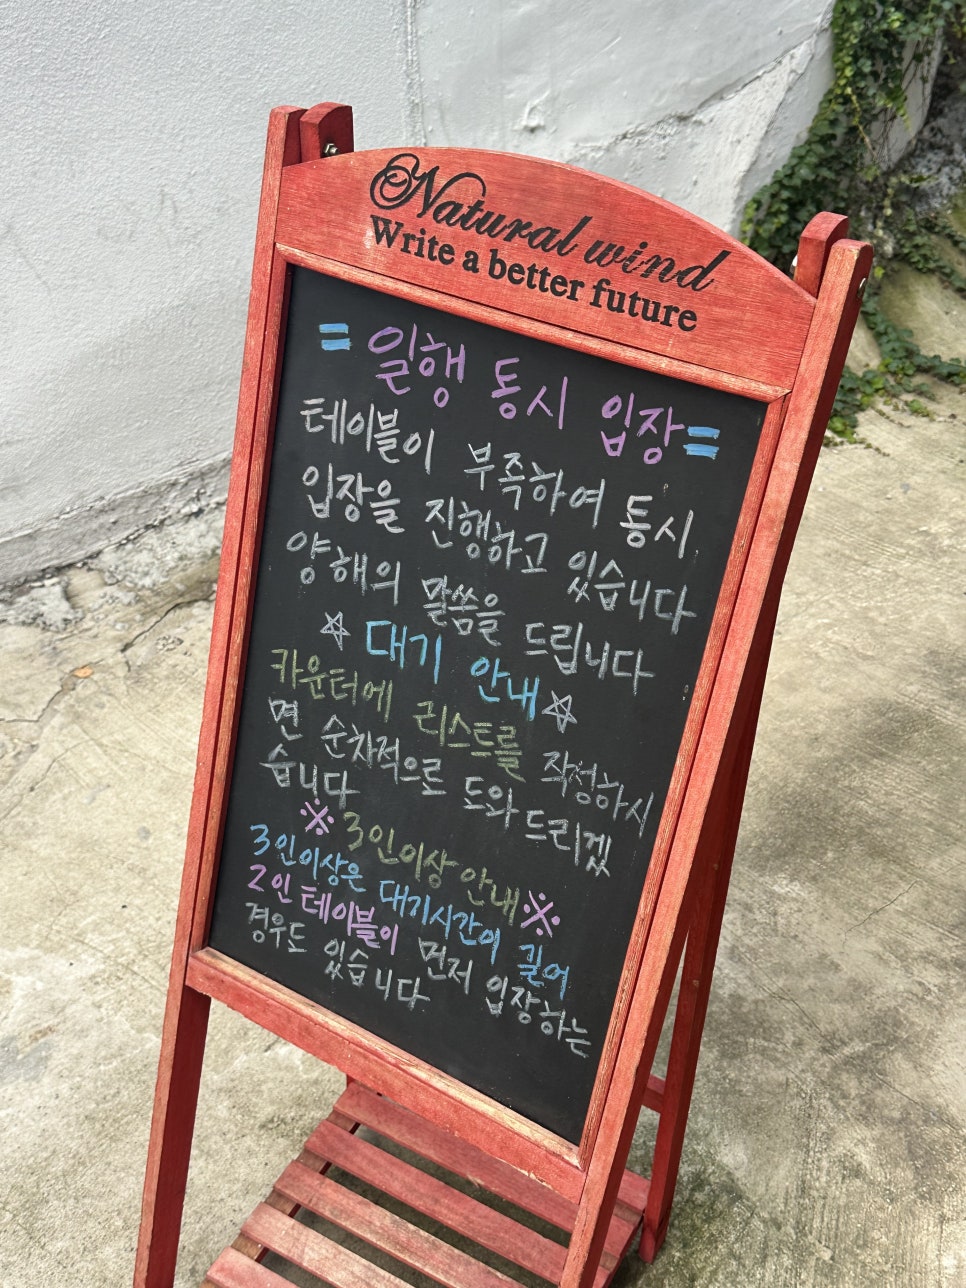 Natural wind
Write a better future
= 일행 동시 입장 =
테이블이 부족하여 동시
입장을 진행하고 있습니다
양해의 말씀을 드립니다
☆ 대기 안내 ☆
카운터에 리스트를 작성하시
면 순차적으로 도와드리겠
습니다
※ 3인이상 안내 ※
3인이상은 대기시간이 길어
2인 테이블이 먼저 입장하는
경우도 있습니다